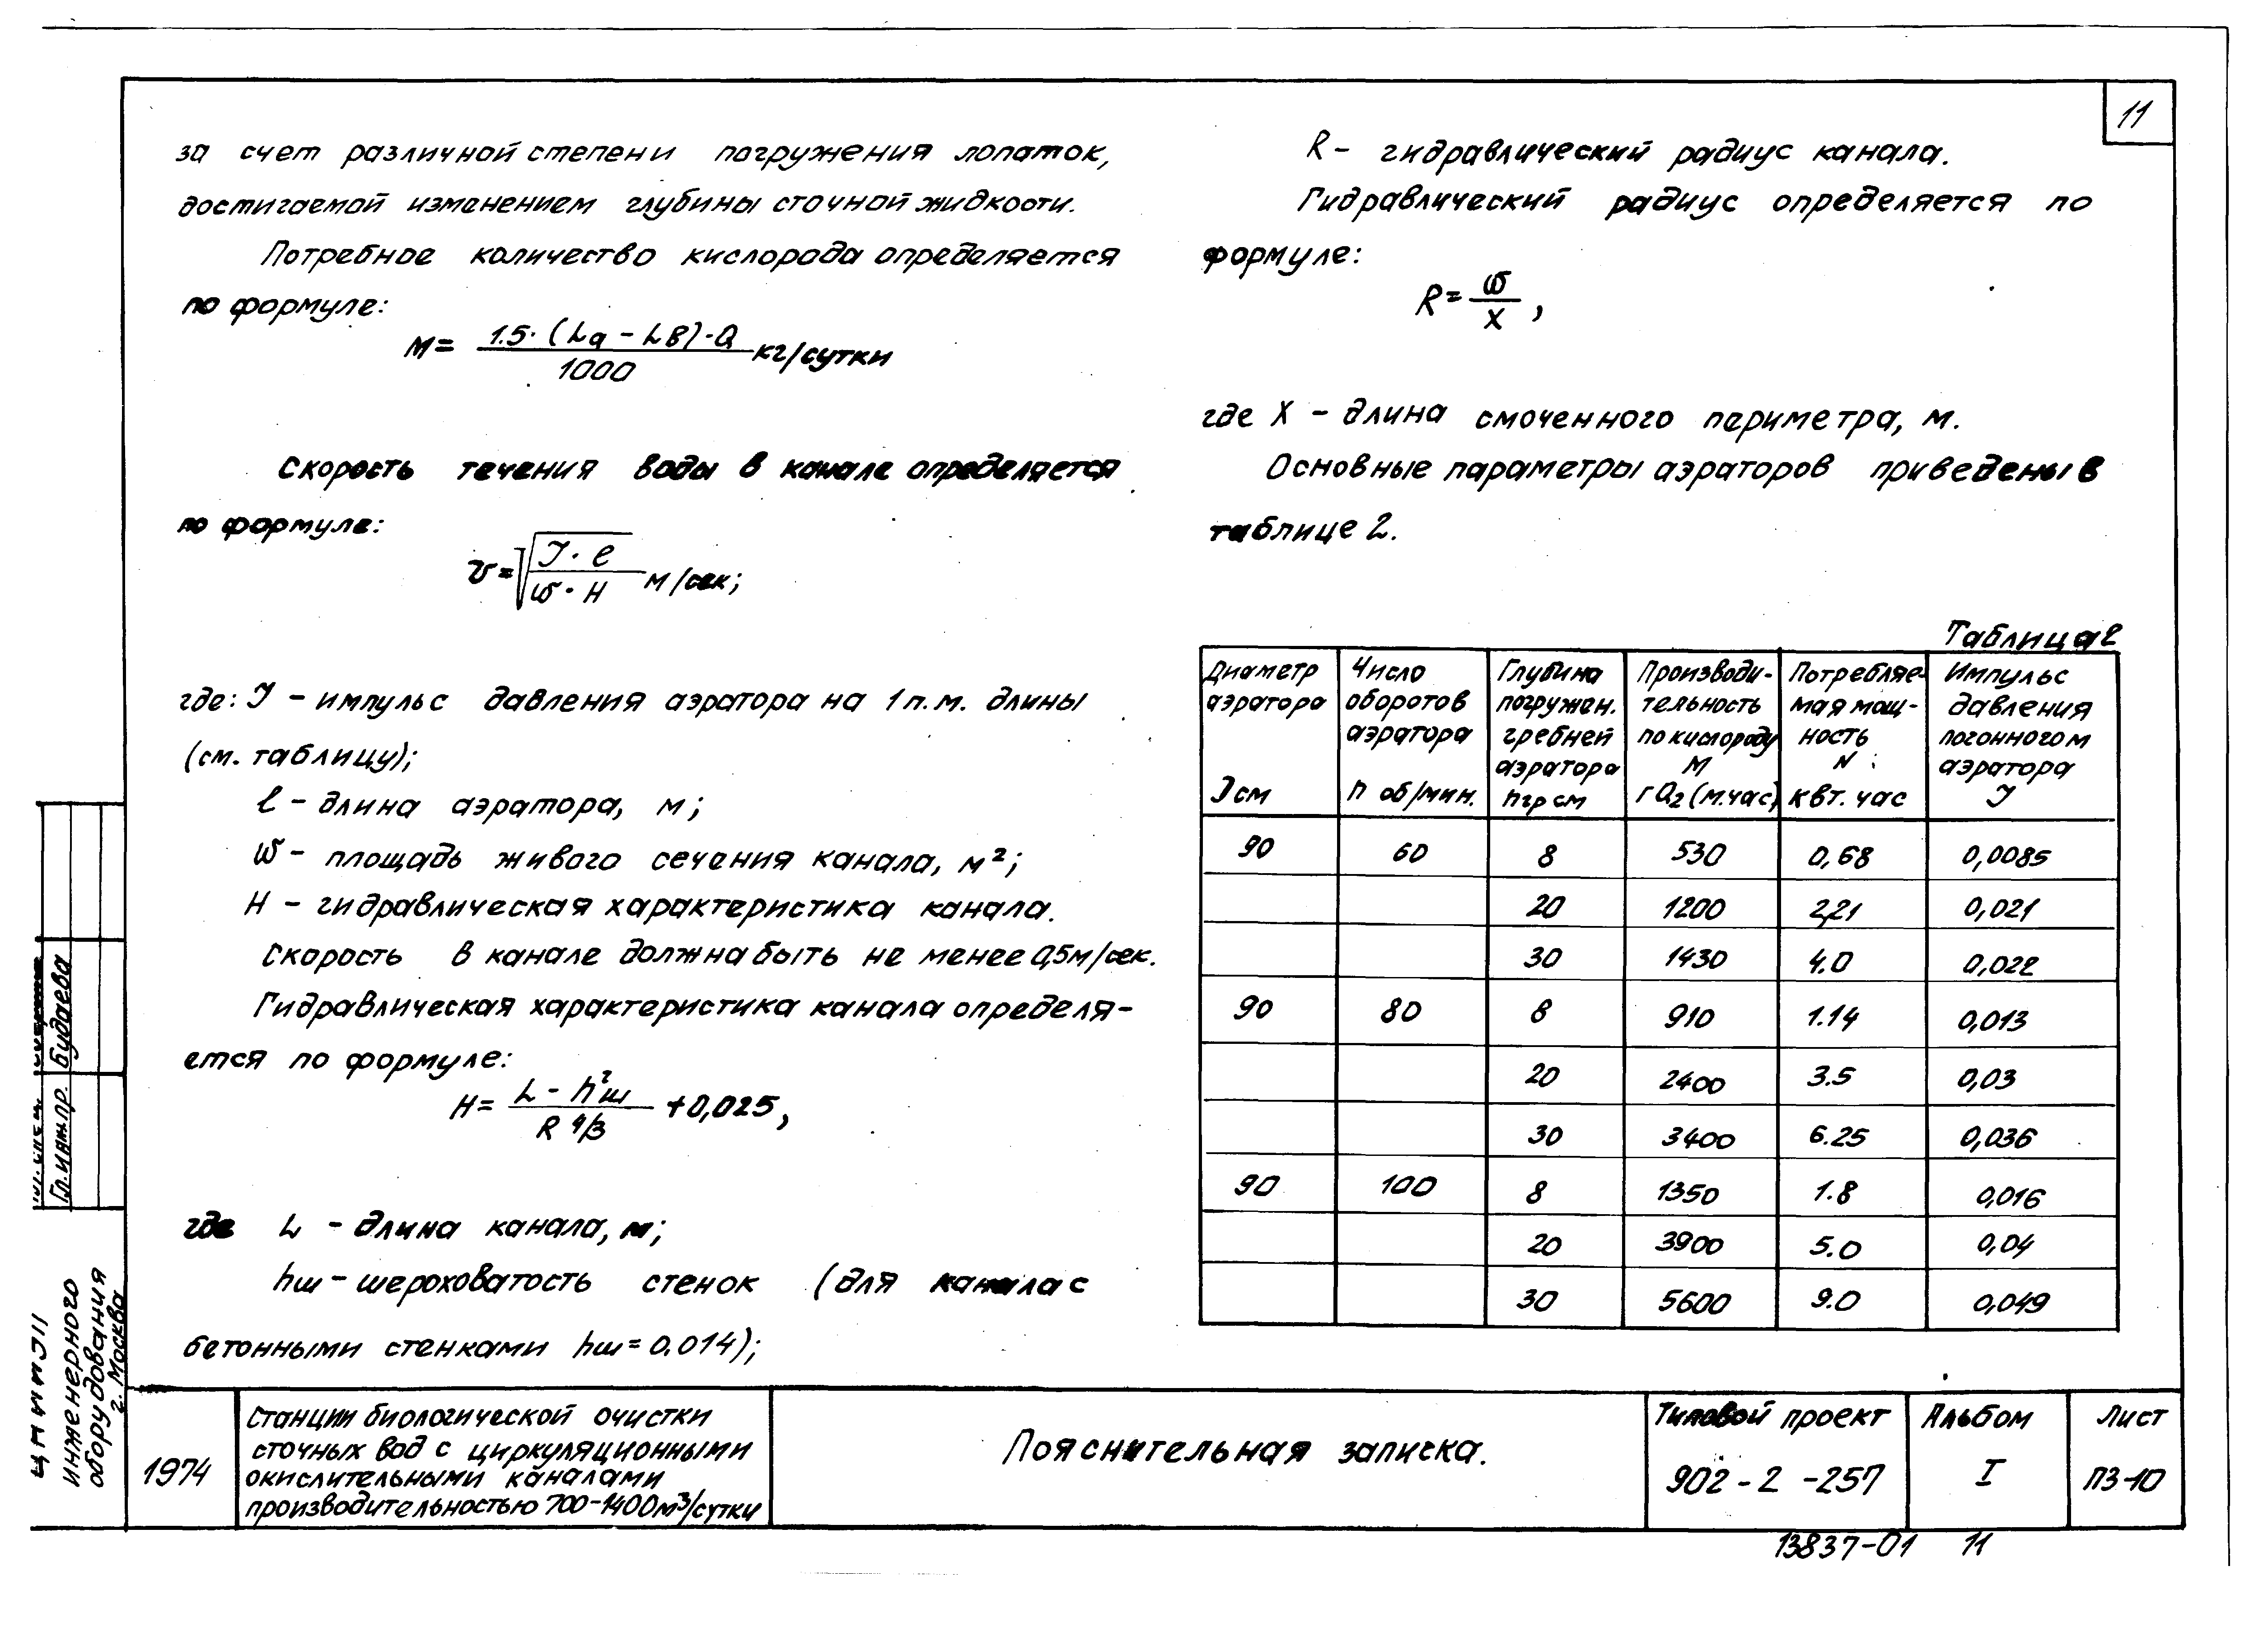 11
за счет различной степени погружения лопаток,
достигаемой изменением глубины сточной жидкости.
Потребное количество кислорода определяется
по формуле:
M = 1.5·(La – LB)·Q / 1000 кг/сутки
Скорость течения воды в канале определяется
по формуле:
v = √(J·ℓ / ω·H) м/сек;
где: J – импульс давления аэратора на 1 п.м. длины
(см. таблицу);
ℓ – длина аэратора, м;
ω – площадь живого сечения канала, м²;
H – гидравлическая характеристика канала.
Скорость в канале должна быть не менее 0,5м/сек.
Гидравлическая характеристика канала определя-
ется по формуле:
H = L – h²ш / R 4/3 + 0,025,
где L – длина канала, м;
hш – шероховатость стенок (для канала с
бетонными стенками hш = 0.014);
R – гидравлический радиус канала.
Гидравлический радиус определяется по
формуле:
R = ω / X ,
где X – длина смоченного периметра, м.
Основные параметры аэраторов приведены в
таблице 2.
Таблица 2
Диаметр аэратора Jсм | Число оборотов аэратора n об/мин. | Глубина погружен. гребней аэратора hгр см | Производи-тельность по кислороду M г O2 (м.час) | Потребляе-мая мощ-ность N квт. час | Импульс давления погонного м аэратора J
90 | 60 | 8 | 530 | 0,68 | 0,0085
20 | 1200 | 2,21 | 0,021
30 | 1430 | 4.0 | 0,022
90 | 80 | 8 | 910 | 1.14 | 0,013
20 | 2400 | 3.5 | 0,03
30 | 3400 | 6.25 | 0,036
90 | 100 | 8 | 1350 | 1.8 | 0,016
20 | 3900 | 5.0 | 0,04
30 | 5600 | 9.0 | 0,049
Гл. инж. пр. Будаева
ЦНИИЭП
инженерного
оборудования
г. Москва
1974
Станции биологической очистки
сточных вод с циркуляционными
окислительными каналами
производительностью 700-1400м³/сутки
Пояснительная записка.
Типовой проект
902-2-257
Альбом
I
Лист
ПЗ-10
13837-01 11